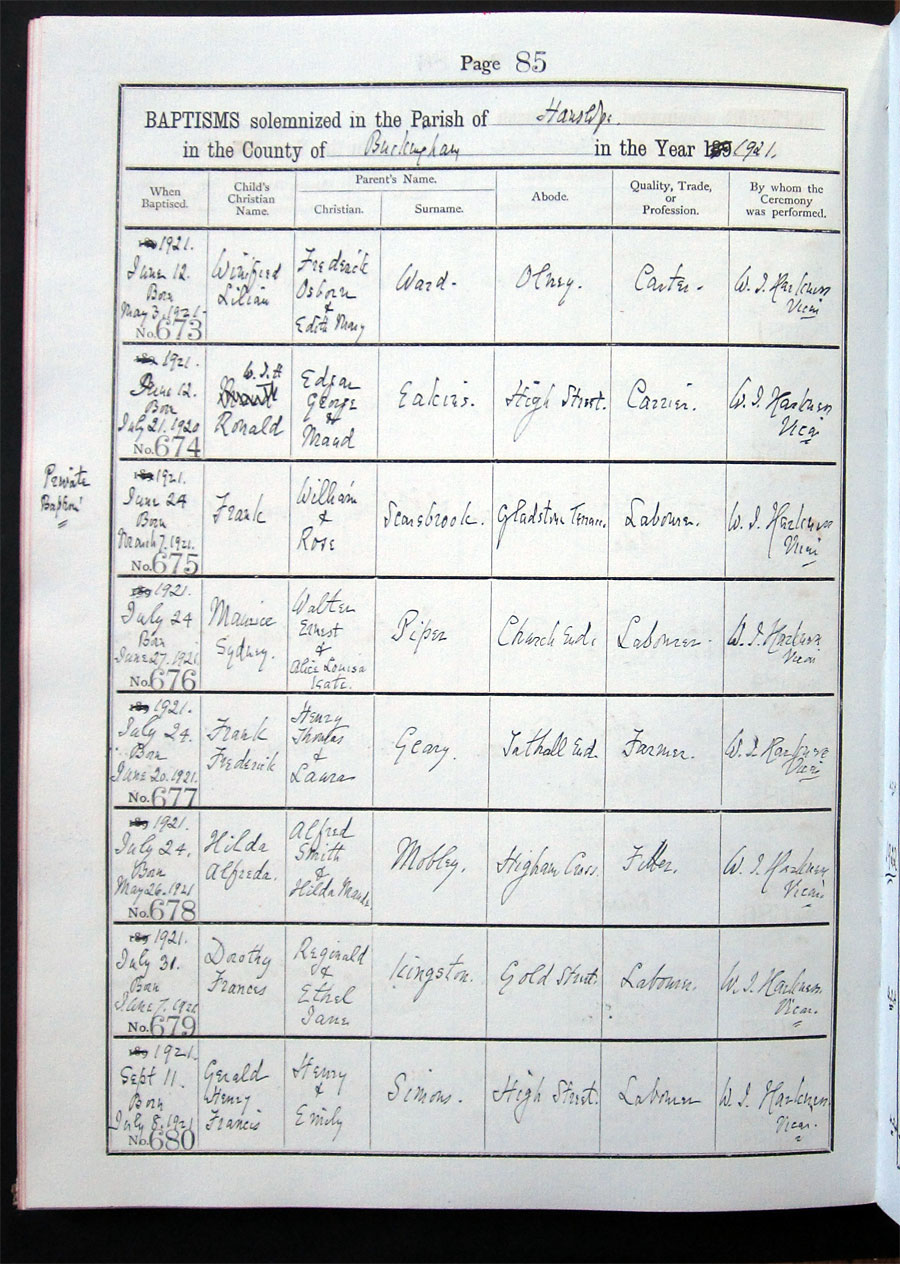 Page 85
BAPTISMS solemnized in the Parish of Hanslope.
in the County of Buckingham in the Year 189 1921.
When Baptised.
Child's Christian Name.
Parent's Name.
Christian.
Surname.
Abode.
Quality, Trade, or Profession.
By whom the Ceremony was performed.
189 1921.
June 12.
Born
May 3. 1921.
No. 673
Winifred
Lilian
Frederick
Osborn
&
Edith Mary
Ward.
Olney.
Carter.
W. J. Harkness
Vicar
189 1921.
June 12.
Born
July 21. 1920
No. 674
W. J. H
Ronald
Edgar
George
&
Maud
Eakins.
High Street.
Carrier.
W. J. Harkness
Vicar
Private
Baptism
189 1921.
June 24
Born
March 7. 1921.
No. 675
Frank
William
&
Rose
Scarsbrook.
Gladstone Terrace.
Labourer.
W. J. Harkness
Vicar
189 1921.
July 24
Born
June 27. 1921.
No. 676
Maurice
Sydney.
Walter
Ernest
&
Alice Louisa
Kate.
Piper
Church End.
Labourer.
W. J. Harkness
Vicar
189 1921.
July 24.
Born
June 20. 1921.
No. 677
Frank
Frederick
Henry
Thomas
&
Laura
Geary.
Tathall End.
Farmer.
W. J. Harkness
Vicar
189 1921.
July 24.
Born
May 26. 1921
No. 678
Hilda
Alfreda.
Alfred
Smith
&
Hilda Maude
Mobley.
Higham Cross.
Fitter.
W. J. Harkness
Vicar.
189 1921.
July 31.
Born
June 7. 1921
No. 679
Dorothy
Frances
Reginald
&
Ethel
Jane
Kingston.
Gold Street.
Labourer.
W. J. Harkness
Vicar.
189 1921.
Sept 11.
Born
July 8. 1921
No. 680
Gerald
Henry
Francis
Henry
&
Emily
Simons.
High Street.
Labourer
W. J. Harkness
Vicar.